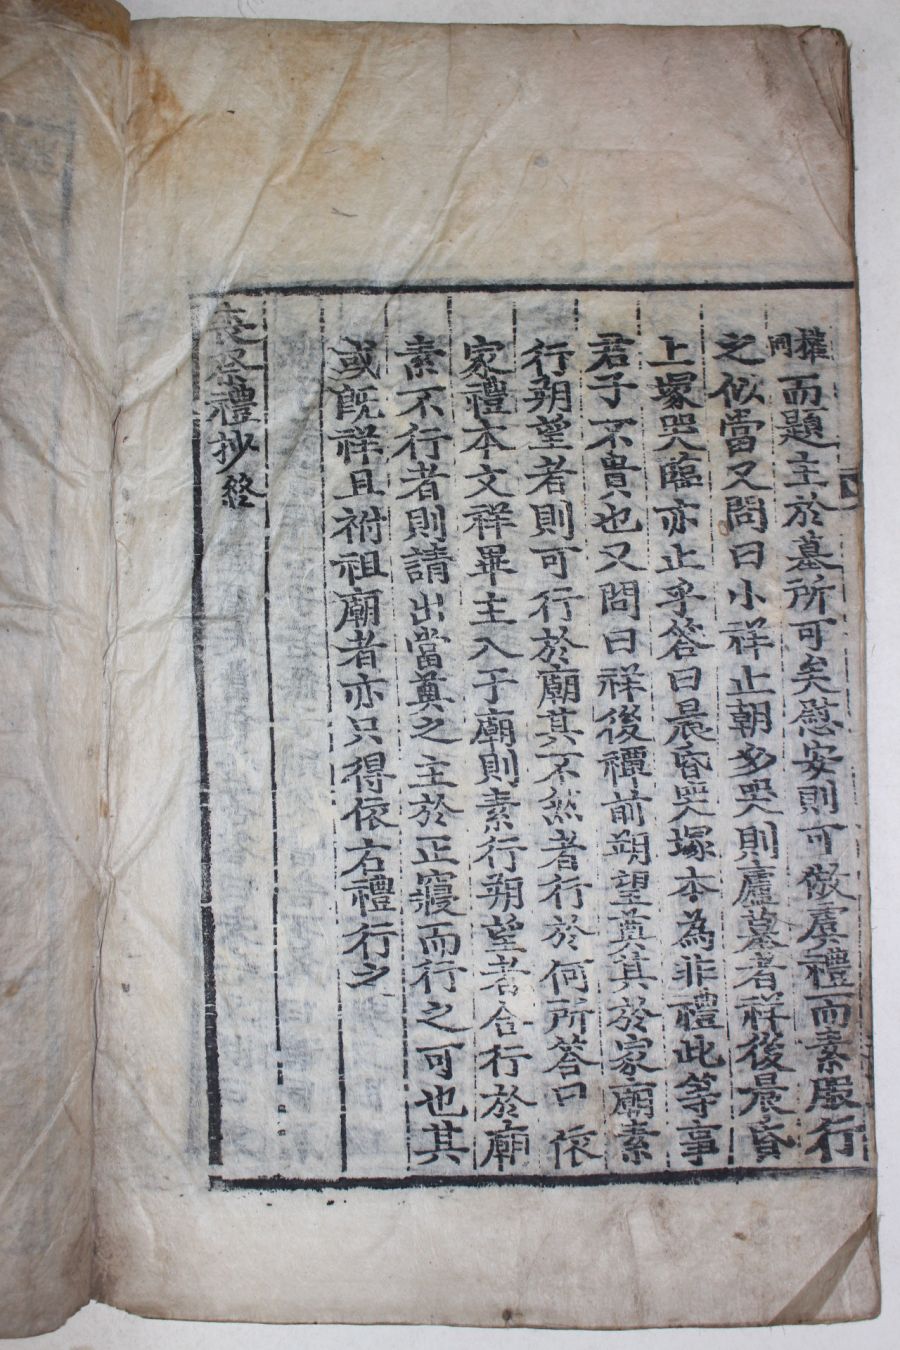 權同而題主於墓所可矣慰安則可倣虞禮而素嚴行
之似當又問曰小祥止朝夕哭則廬墓者祥後晨昏
上塚哭臨亦止乎答曰晨昏哭塚本為非禮此等事
君子不貴也又問曰祥後禫前朔望奠其於家廟素
行朔望者則可行於廟其不然者行於何所答曰依
家禮本文祥畢主入于廟則素行朔望者合行於廟
素不行者則請出當奠之主於正寢而行之可也其
或既祥且祔祖廟者亦只得依右禮行之
喪祭禮抄終